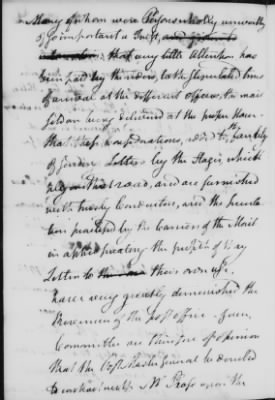 Many of whom were Persons wholly unworthy
of so important a Trust,
that very little Attention has
been paid by the riders, to the stipulated times
of arrival at the different offices, the mail
seldom being delivered at the proper Hour
that these considerations, added to the carriage
of Letters by the Stages, which
ply on that road, and are furnished
with trusty Conductors, and the
practised by the Carriers of the Mail
in appropriating the profits of Way
Letters to their own use,
have very greatly diminished the
Revenues of the post office. Your
Committee are therefore of opinion
that the Post Master General be directed
to contract with Mr upon the